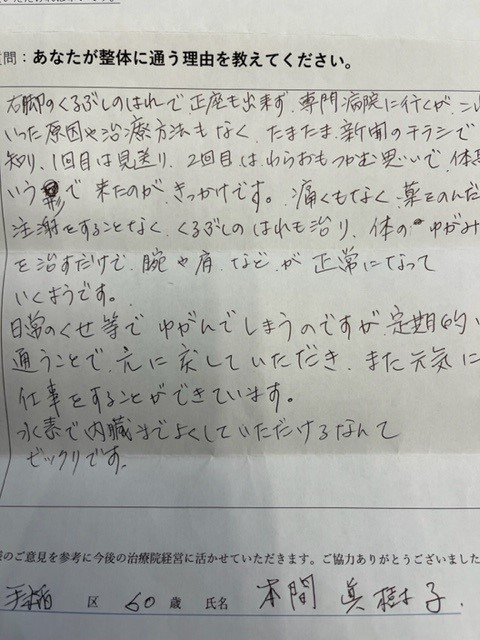 質問：あなたが整体に通う理由を教えてください。
右脚のくるぶしのはれで、正座も出来ず、専門病院に行くが、これ
いった原因や治療方法もなく、たまたま新聞のチラシで
知り、1回目は見送り、2回目はわらおもつかむ思いで、体験
いう で来たのがきっかけです。痛くもなく、薬をのんだ
注射をすることなく、くるぶしのはれも治り、体のゆがみ
を治すだけで、腕や肩、などが正常になって
いくようです。
日常のくせ等でゆがんでしまうのですが、定期的
通うことで、元に戻していただき、また元気に
仕事をすることができています。
水素で内臓までよくしていただけるなんて
ビックリです。
様のご意見を参考に今後の治療院経営に活かせていただきます。ご協力ありがとうございました
手稲 区 60 歳 氏名 本間 眞樹子